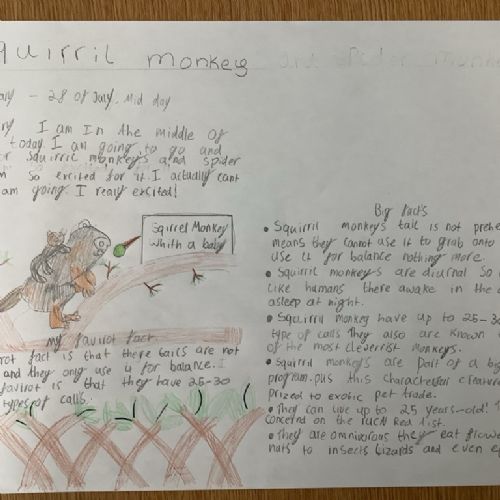 quirril monkey and spider monkey
– 28 of July, Mid day
I am In the middle of
today. I am going to go and
squirril monkey's and spider
so excited for it. I actualy cant
am going. I realy excited!
Squirrel Monkey
whith a baby
my favirot fact
fact is that there tails are not
and they only use it for balance. I
favirot is that they have 25-30
types of calls.
Big facts
• Squirril monkeys tail is not prehe
means they cannot use it to grab onto
use it for balance nothing more.
• Squirril monkeys are diurnal So
like humans there awake in the
asleep at night.
• Squirril monkey have up to 25-30
type of calls They also are known
of the most cleverist monkeys.
• Squirril monkeys are part of a
program. plus this character
prized to exotic pet trade.
• They can live up to 25 years-old!
concernd on the IUCN Red list.
• They are omnivorous they eat flower
nuts to insects lizards and even e